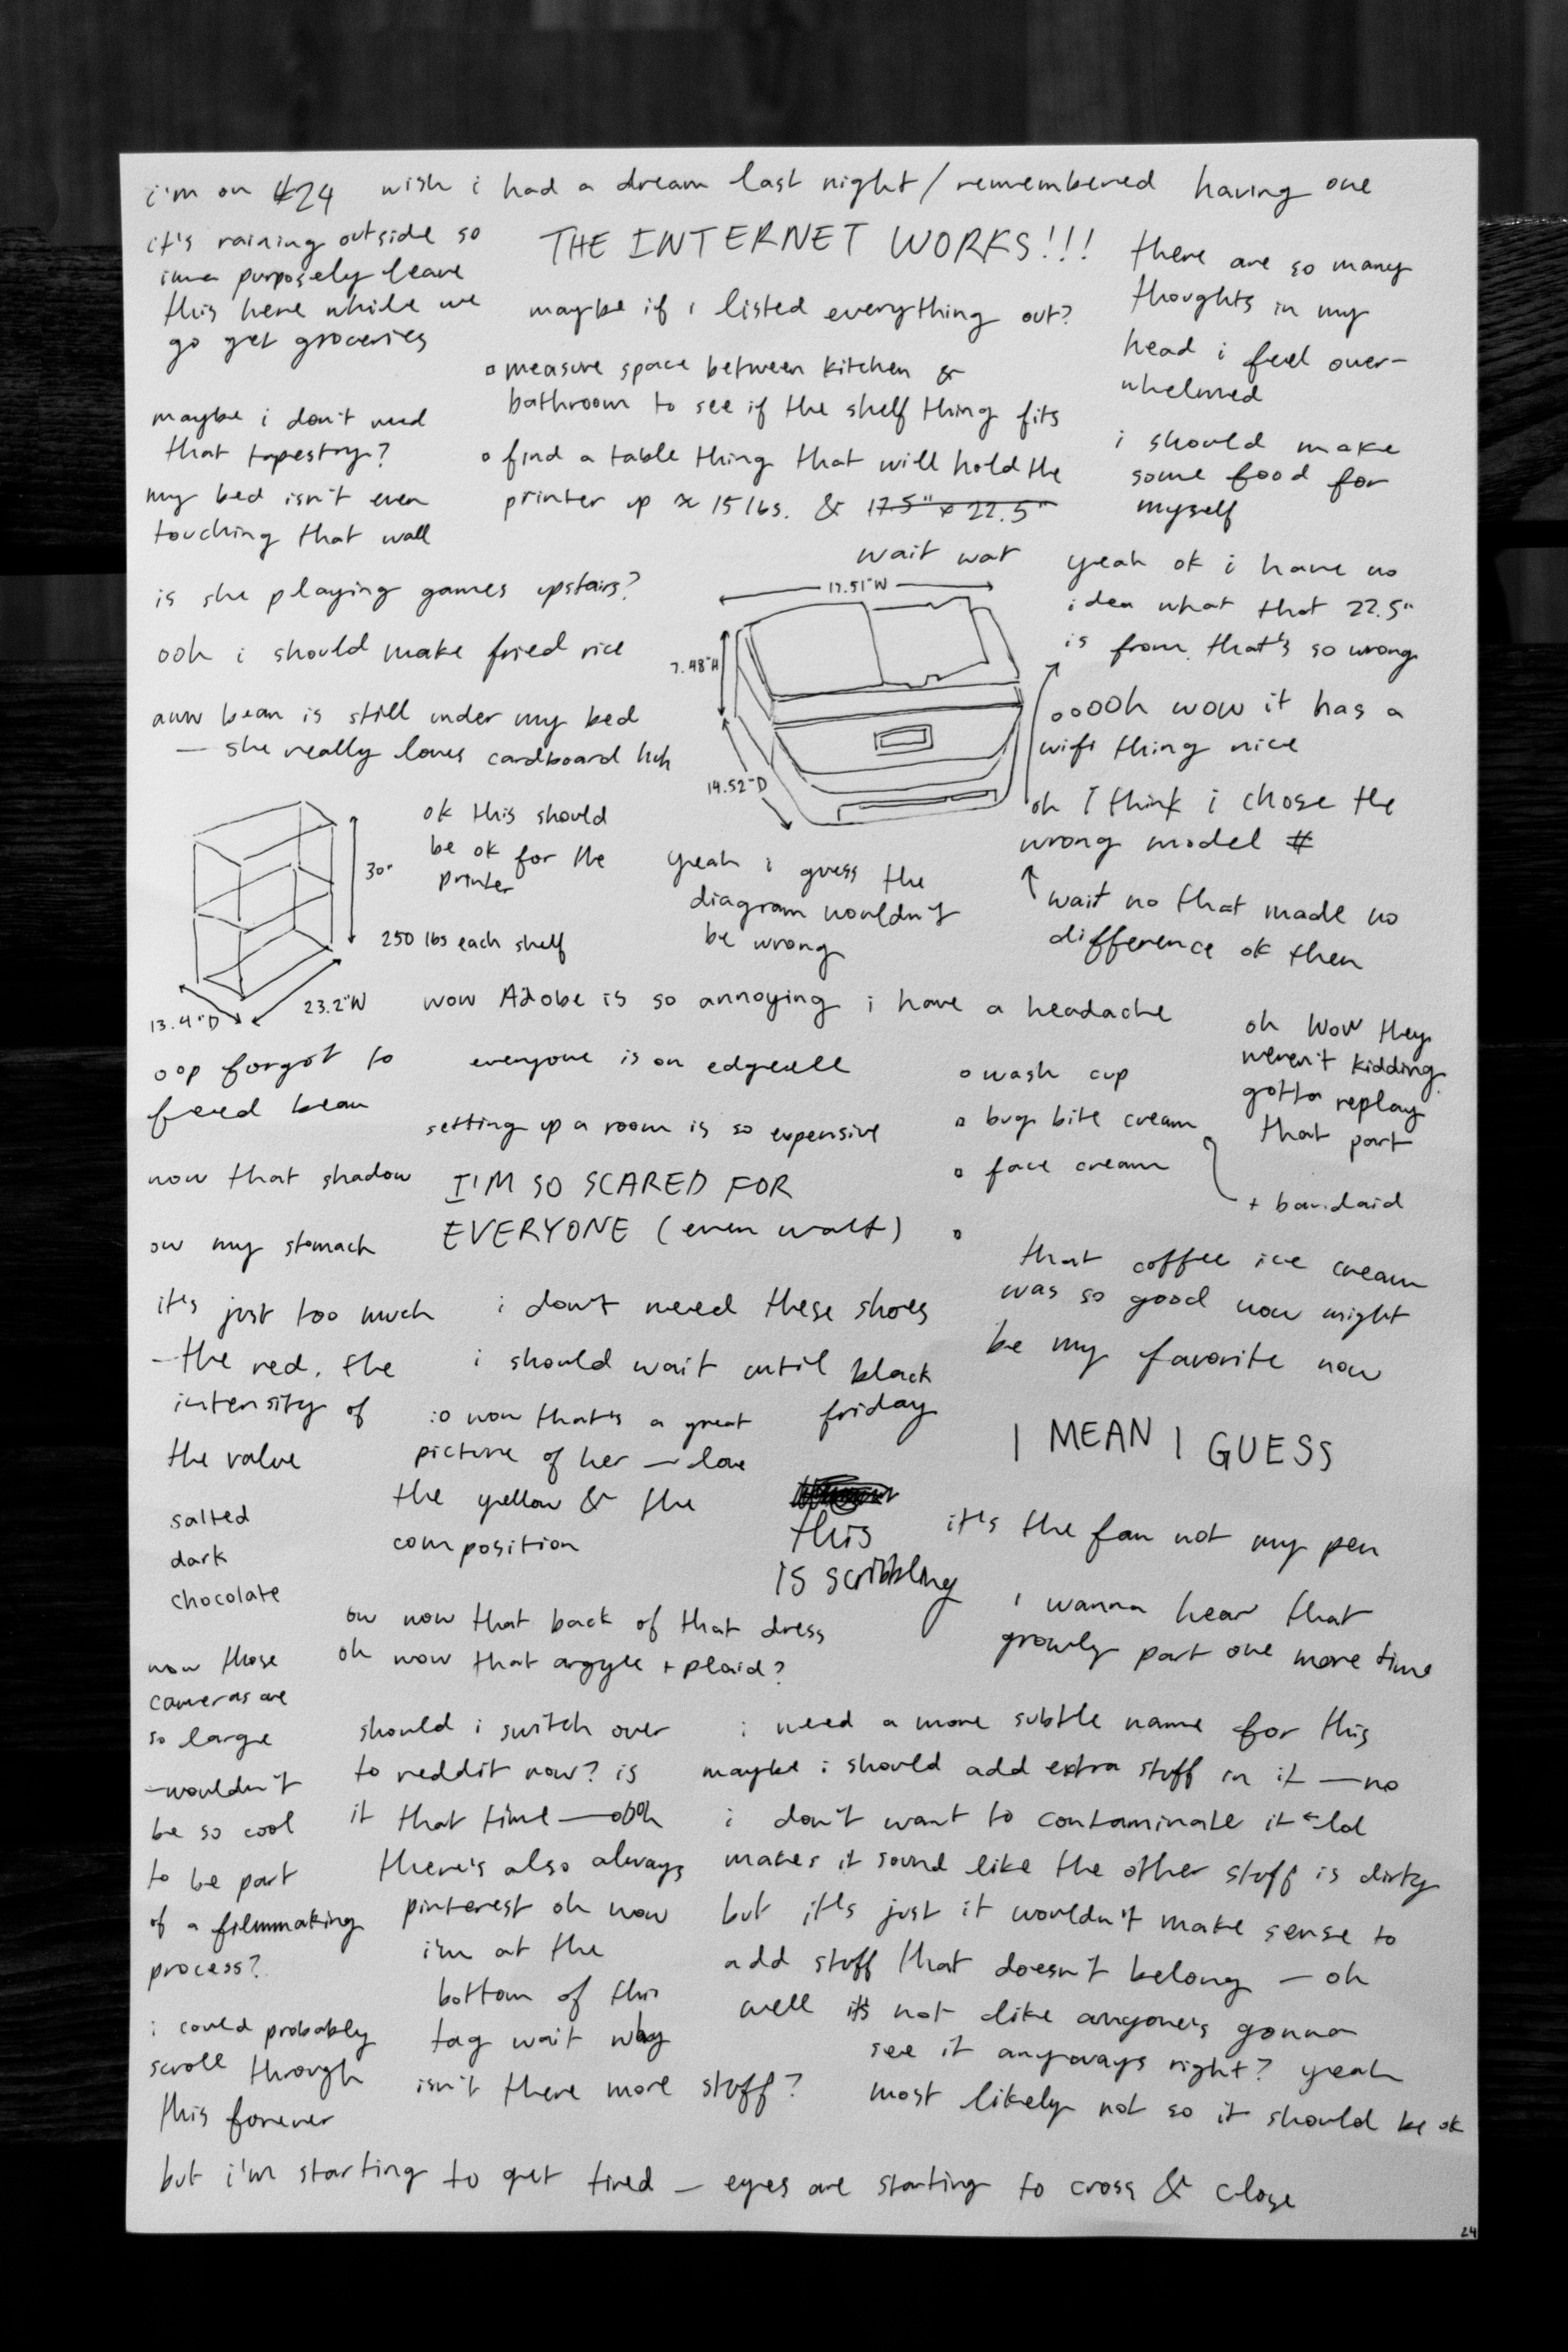 i'm on #24 wish i had a dream last night/remembered having one
it's raining outside so
imma purposely leave
this here while we
go get groceries
THE INTERNET WORKS!!!
maybe if i listed everything out?
measure space between kitchen &
bathroom to see if the shelf thing fits
find a table thing that will hold the
printer up ≈ 15 lbs. & 17.5" x 22.5"
wait wat
there are so many
thoughts in my
head i feel over-
whelmed
i should make
some food for
myself
maybe i don't need
that tapestry?
my bed isn't even
touching that wall
is she playing games upstairs?
ooh i should make fried rice
aww bean is still under my bed
— she really loves cardboard huh
17.51"W
7.48"H
14.52"D
yeah ok i have no
idea what that 22.5"
is from. that's so wrong
ooOOh wow it has a
wifi thing nice
oh I think i chose the
wrong model #
wait no that made no
difference ok then
30"
13.4"D
23.2"W
ok this should
be ok for the
printer
250 lbs each shelf
yeah i guess the
diagram wouldn't
be wrong
wow Adobe is so annoying i have a headache
oop forgot to
feed bean
everyone is on edgeeee
setting up a room is so expensive
wash cup
bug bite cream
face cream
+ bandaid
oh wow they
weren't kidding
gotta replay
that part
wow that shadow
I'M SO SCARED FOR
EVERYONE (even walt)
ow my stomach
it's just too much
— the red. the
intensity of
the value
i don't need these shoes
i should wait until black
friday
that coffee ice cream
was so good wow might
be my favorite now
:o wow that's a great
picture of her — love
the yellow & the
composition
I MEAN I GUESS
salted
dark
chocolate
this
is scribbling
it's the fan not my pen
i wanna hear that
growly part one more time
ow wow that back of that dress
oh wow that argyle + plaid?
wow those
cameras are
so large
— wouldn't
be so cool
to be part
of a filmmaking
process?
should i switch over
to reddit now? is
it that time — oooh
there's also always
pinterest oh wow
i'm at the
bottom of this
tag wait why
isn't there more stuff?
i need a more subtle name for this
maybe i should add extra stuff in it — no
i don't want to contaminate it ← lol
makes it sound like the other stuff is dirty
but it's just it wouldn't make sense to
add stuff that doesn't belong — oh
well it's not like anyone's gonna
see it anyways right? yeah
most likely not so it should be ok
i could probably
scroll through
this forever
but i'm starting to get tired — eyes are starting to cross & close
24